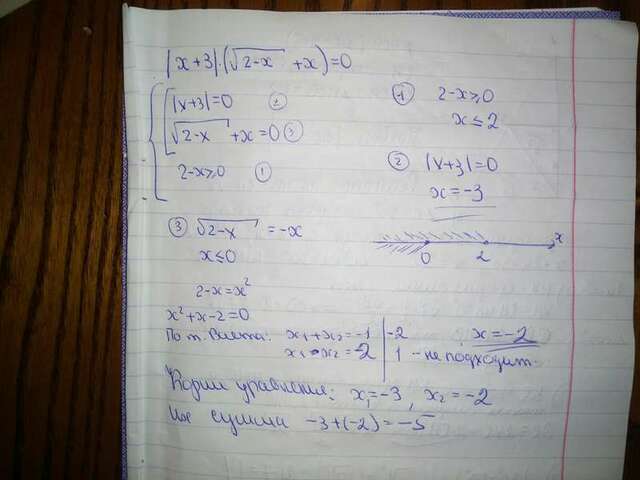 |x+3|·(√2-x +x)=0
|x+3|=0 ②
√2-x +x=0 ③
2-x≥0 ①
① 2-x≥0
x≤2
② |x+3|=0
x=-3
③ √2-x =-x
x≤0
2-x=x²
x²+x-2=0
0 2 x
По т. Виета: x₁+x₂=-1 | -2 x=-2
x₁·x₂=-2 | 1 - не подходит.
Корни уравнения: x₁=-3, x₂=-2
Их сумма -3+(-2)=-5